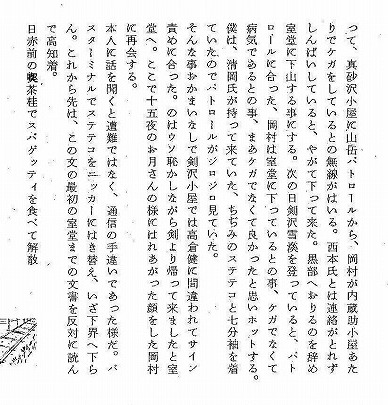 つて、真砂沢小屋に山岳パトロールから、岡村が内蔵助小屋あた
りでケガをしているとの無線がはいる。西本氏とは連絡がとれず
しんぱいしていると、やがて下って来た。黒部へおりるのを辞め
室堂に下山する事にする。次の日剣沢雪溪を登っていると、パト
ロールに合った。岡村は室堂に下っているとの事、ケガでなくて
病気であるとの事、まあケガでなくて良かったと思いホットする。
僕は、清岡氏が持って来ていた、ちぢみのステテコと七分袖を着
ていたのでパトロールがジロジロ見ていた。
そんな事おかまいなしで剣沢小屋では高倉健に間違われてサイン
責めに合った。のはウソ恥かしながら剣より帰って来ましたと室
堂へ。ここで十五夜のお月さんの様にはれあがった顔をした岡村
に再会する。
本人に話を聞くと遭難ではなく、通信の手違いであった様だ。バ
スターミナルでステテコをニッカーにはき替え、いざ下界へ下ら
ん。これから先は、この文の最初の室堂までの文書を反対に読ん
で高知着。
日赤前の喫茶桂でスパゲッティを食べて解散